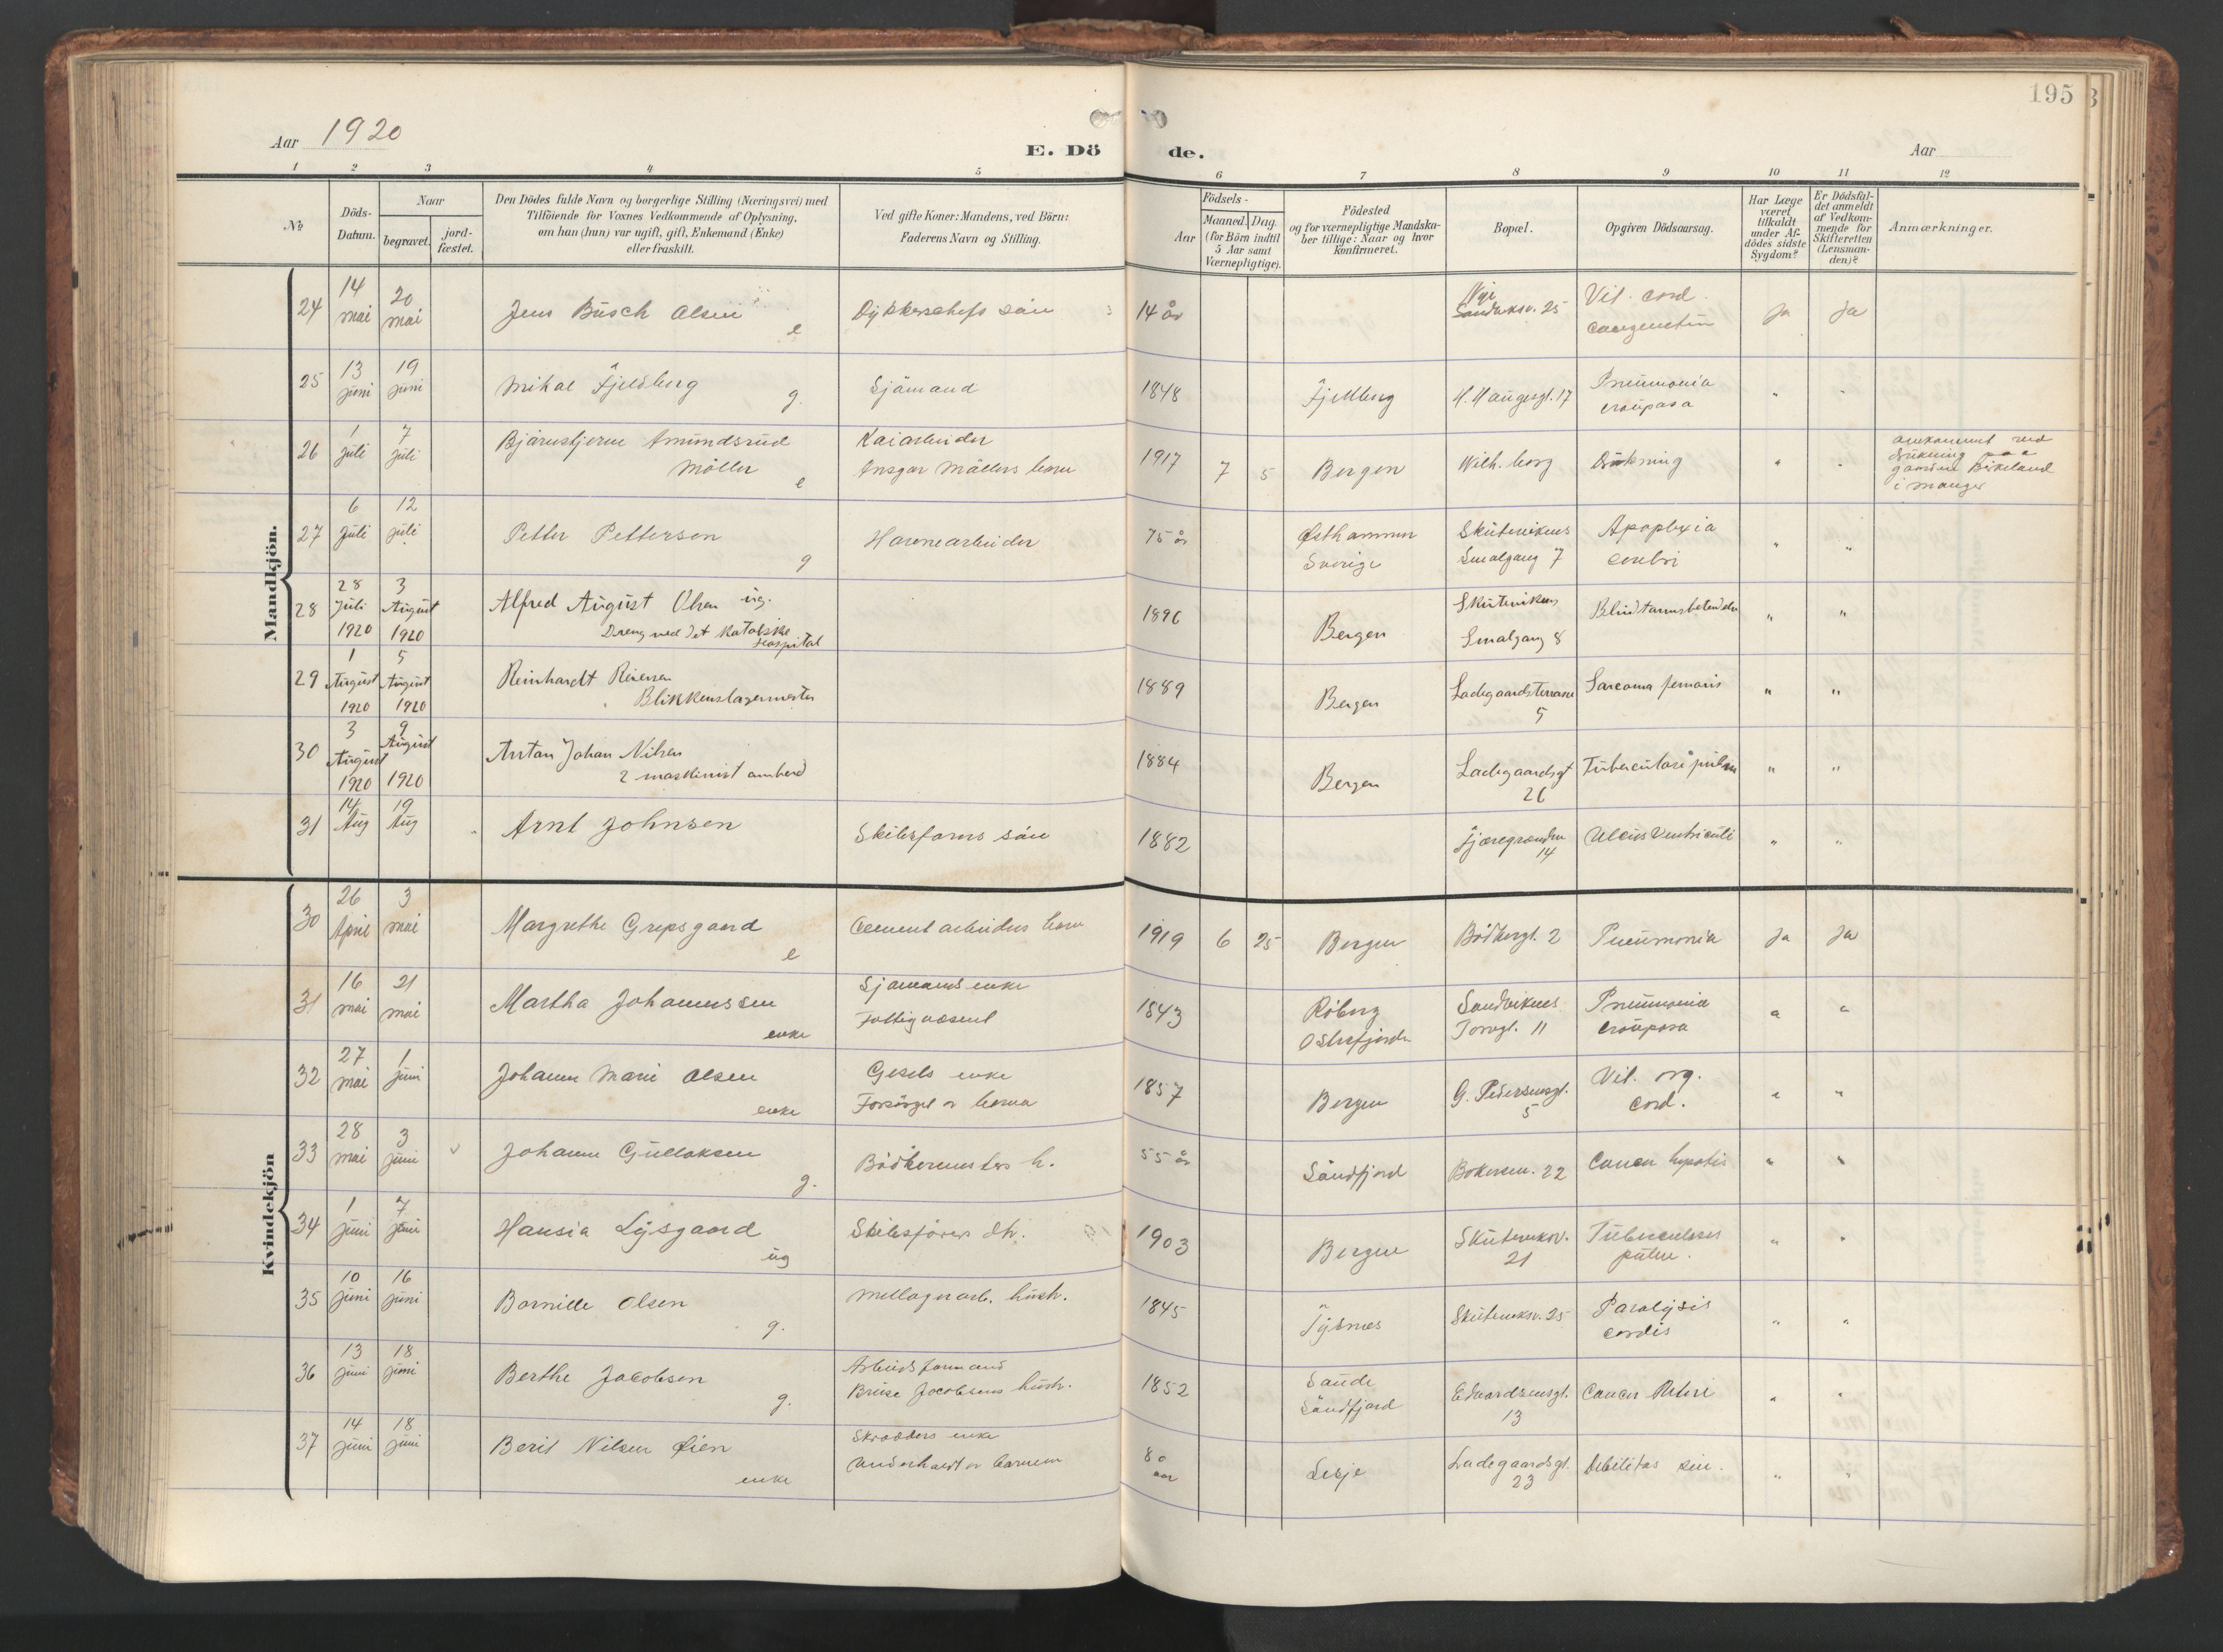 195
Aar 1920
E. Dö de.
Aar
1 2 3 4 5 6 7 8 9 10 11 12
№
Döds-Datum.
Naar
begravet.
jord-fæstet.
Den Dödes fulde Navn og borgerlige Stilling (Næringsvei) med
Tilföiende for Voxnes Vedkommende af Oplysning,
om han (hun) var ugift, gift, Enkemand (Enke)
eller fraskilt.
Ved gifte Koner: Mandens, ved Börn:
Faderens Navn og Stilling.
Födsels-
Aar
Maaned. Dag.
(for Börn indtil
5 Aar samt
Værnepligtige).
Födested
og for værnepligtige Mandska-
ber tillige: Naar og hvor
konfirmeret.
Bopæl.
Opgiven Dödsaarsag.
Har Læge
været
tilkaldt
under Af-
dödes sidste
Sygdom?
Er Dödsfal-
det anmeldt
af Vedkom-
mende for
Skifteretten
(Lensman-
den)?
Anmærkninger.
Mandkjön.
24 14 mai 20 mai Jens Büsch Olsen e sön 14 år Nye Sandviksv. 25 Vit. cord. Ja Ja
25 13 juni 19 juni Mikal Fjeldberg g. Sjömand 1848 Fjellberg H. Haugesgt. 17 Pneumonia crouposa
26 1 juli 7 juli Bjarnestjerne Amundsrud Möller e Kaiarbeider Ansgar Möllers barn 1917 7 5 Bergen Wilh. borg Drukning omkommet ved drukning paa gaarden Birkeland i Manger
27 6 juli 12 juli Petter Pettersen g Havnearbeider 75 år Østhammer Sverige Skutevikens Smalgang 7 Apoplexia cerebri
28 28 Juli 1920 3 August 1920 Alfred August Olsen ug. Dreng ved det Katolske Hospital 1896 Bergen Skutevikens Smalgang 8 Blindtarmsbetendelse
29 1 August 1920 5 August 1920 Reinhardt Reiersen Blikkenslagermester 1889 Bergen Ladegaardsterrasse 5 Sarcoma femoris
30 3 August 1920 9 August 1920 Anton Johan Nilsen 2 maskinist ombord 1884 Bergen Ladegaardsgt 26 Tuberculose pulm
31 14 Aug 19 Aug Arnt Johnsen Skibsförers sön 1882 Fjæregrænden 14 Ulcus Ventriculi
Kvindekjön
30 26 April 3 mai Margrethe Grepsgaard e Cementarbeiders barn 1919 6 25 Bergen Bödkergt. 2 Pneumonia Ja Ja
31 16 mai 21 mai Martha Johannessen enke Sjömands enke Fattigvæsenet 1843 Osterfjorden Sandvikens Torvgt. 11 Pneumonia crouposa
32 27 mai 1 juni Johanne Marie Olsen enke Gesels enke Forsörget av barna 1857 Bergen G. Pedersensgt. 5 Vit. org. cord.
33 28 mai 3 juni Johanne Gullaksen g. Bödkermesters h. 55 år Söndfjord 22 Cancer hepatis
34 1 juni 7 juni Hansia Lysgaard ug Skibsförers dtr. 1903 Bergen Skuteviksv. 21 Tuberculoses pulm.
35 10 juni 16 juni Bornille Olsen g. hustr. 1845 Tysnes Skuteviksv. 25 Paralysis cordis
36 13 juni 18 juni Berthe Jacobsen g. Arbeidsformand Jacobsens hustr. 1852 Sande Söndfjord Edvardsensgt. 13 Cancer Uteri
37 14 juni 18 juni Berit Nilsen Öien enke Skrædders enke Underholdt av barnene 80 aar Lesje Ladegaardsgt. 23 Debilitas sen.